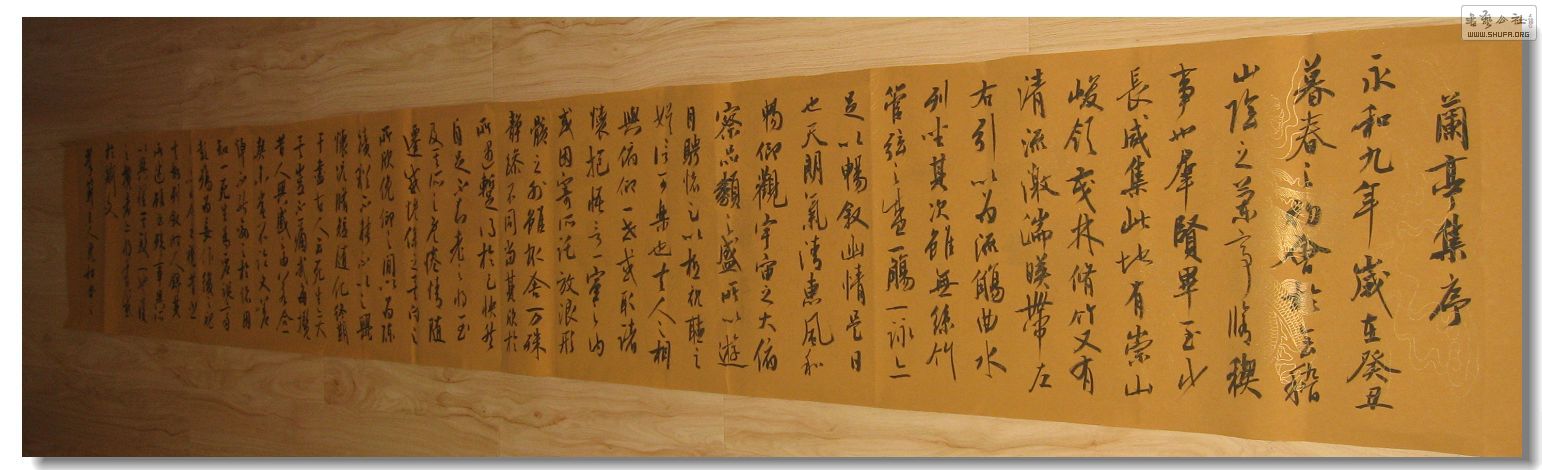 蘭亭集序
永和九年歲在癸丑
暮春之初會於會稽
山陰之蘭亭脩稧
事也羣賢畢至少
長咸集此地有崇山
峻領茂林脩竹又有
清流激湍暎帶左
右引以為流觴曲水
列坐其次雖無絲竹
管弦之盛一觴一詠亦
足以暢敘幽情是日
也天朗氣清惠風和
暢仰觀宇宙之大俯
察品類之盛所以遊
目騁懷足以極視聽之
娛信可樂也夫人之相
與俯仰一世或取諸
懷抱悟言一室之內
或因寄所託放浪形
骸之外雖取舍萬殊
靜躁不同當其欣於
所遇暫得於己快然
自足不知老之將至
及其所之既倦情隨
遷感慨係之矣向之
所欣俛仰之間以為陳
跡猶不能不以之興
懷況脩短隨化終期
於盡古人云死生亦大
矣豈不痛哉每攬
昔人興感之由若合一
契未嘗不臨文嗟
悼不能喻之於懷固
知一死生為虛誕齊
彭殤為妄作後之視
於斯文
書藝公社
WWW.SHUFA.ORG